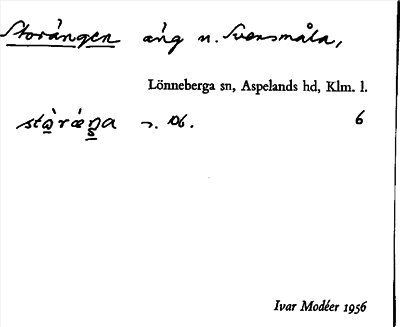 Storängen äng n. Svensmåla,
Lönneberga sn, Aspelands hd, Klm. l.
6
Ivar Modéer 1956